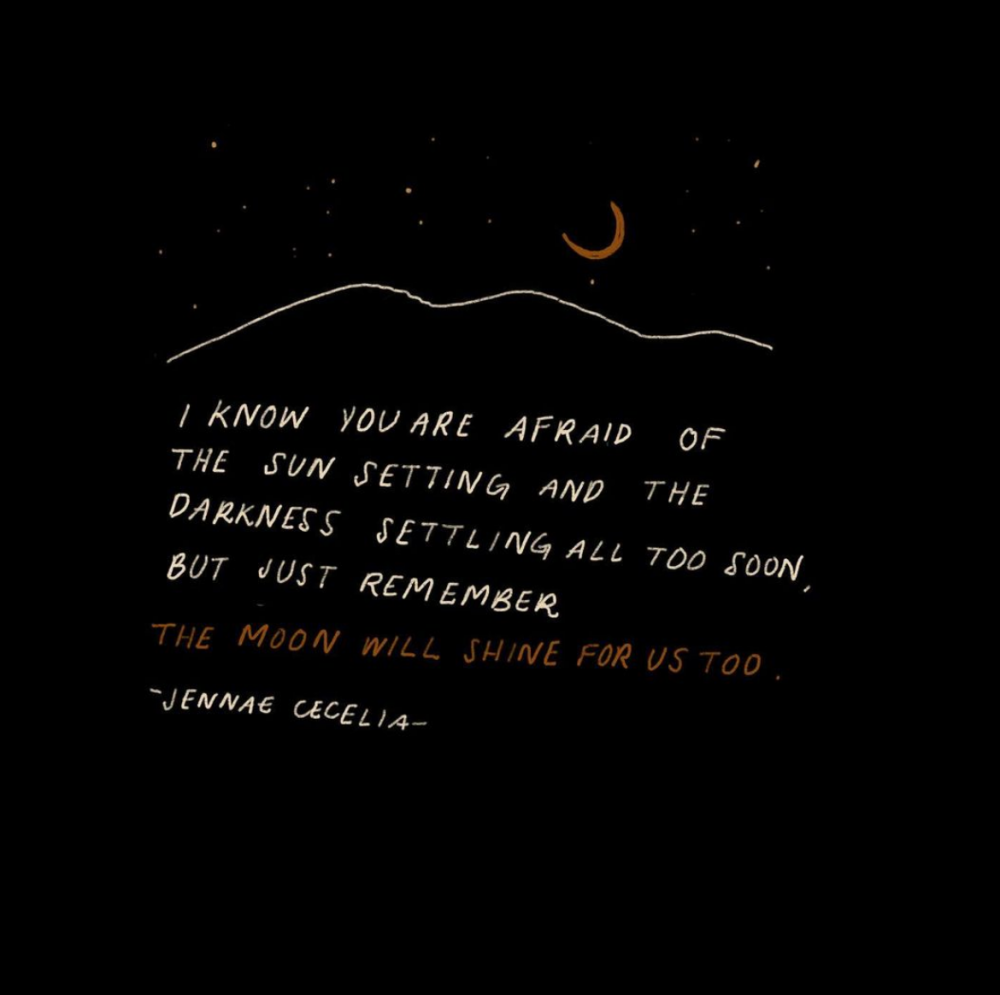 I KNOW YOU ARE AFRAID OF
THE SUN SETTING AND THE
DARKNESS SETTLING ALL TOO SOON,
BUT JUST REMEMBER
THE MOON WILL SHINE FOR US TOO.
-JENNAE CECELIA-